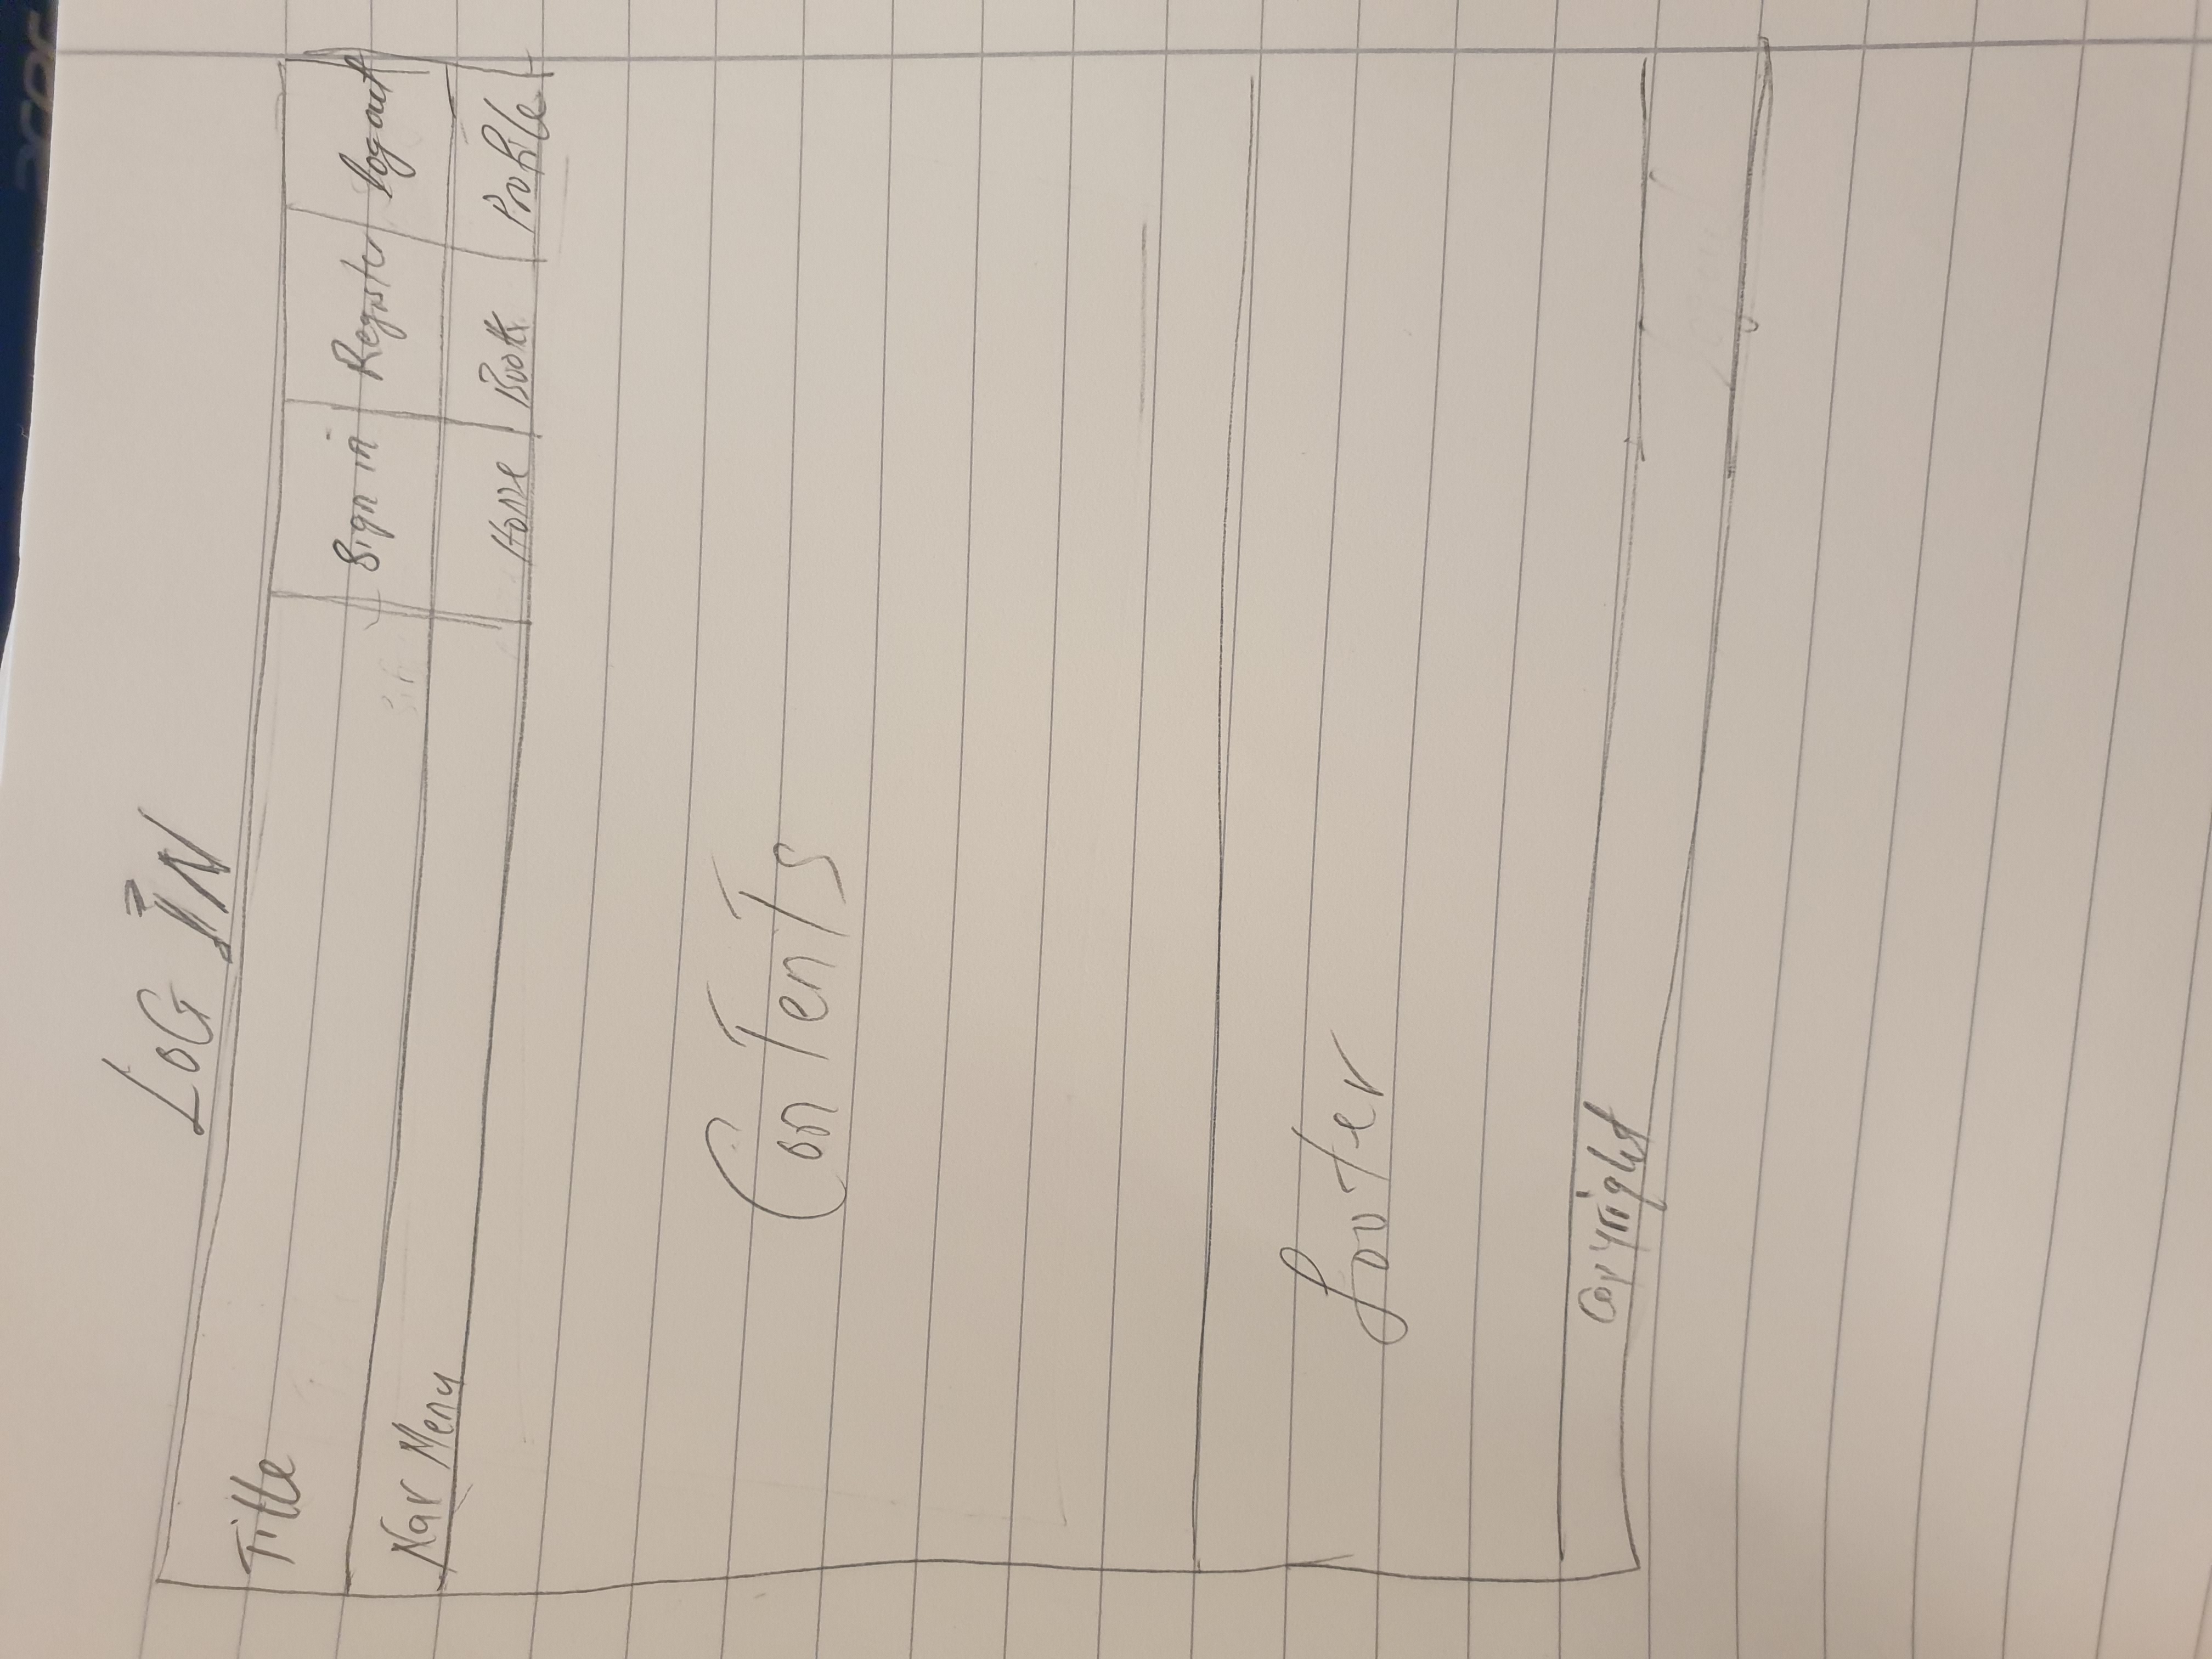 acer
LOG IN
Title
Sign in Register logout
Nav Menu
Home Book Profile
Contents
footer
Copyright